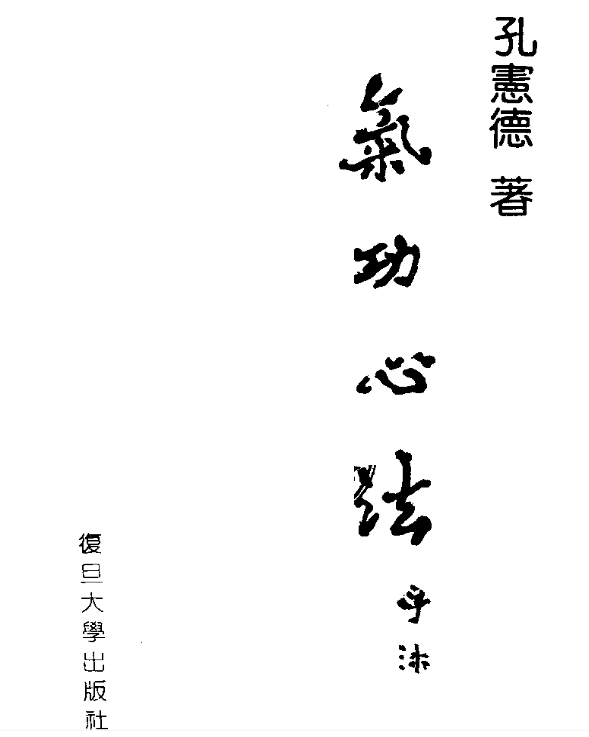 孔憲德 著
氣功心法
沐
復旦大學出版社